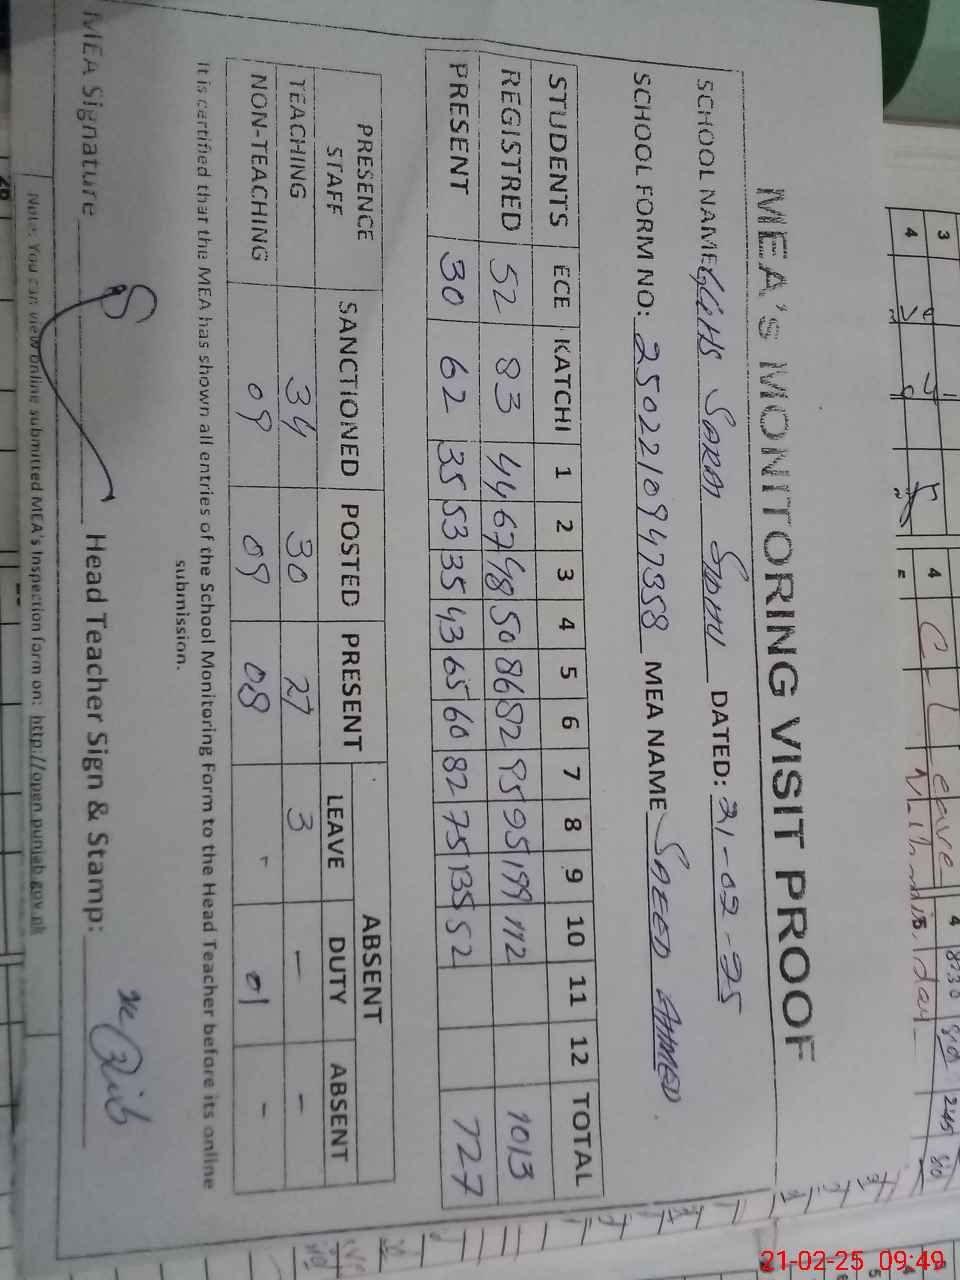 MEA'S MONITORING VISIT PROOF
SCHOOL NAME GGHS SARAI SIDHU DATED: 21-02-25
SCHOOL FORM NO: 2502210947358 MEA NAME SAEED AHMED
STUDENTS ECE KATCHI 1 2 3 4 5 6 7 8 9 10 11 12 TOTAL
REGISTRED 52 83 44 67 48 50 86 82 95 95 199 112 1013
PRESENT 30 62 35 53 35 43 65 60 82 75 135 52 727
PRESENCE STAFF SANCTIONED POSTED PRESENT ABSENT
LEAVE DUTY ABSENT
TEACHING 34 30 27 3 - -
NON-TEACHING 09 09 08 - 01 -
It is certified that the MEA has shown all entries of the School Monitoring Form to the Head Teacher before its online
submission.
MEA Signature Head Teacher Sign & Stamp:
Note: You can view online submitted MEA's Inspection form on: http://open.punjab.gov.pk
3
4
4 C-Leave
4 8:30 8/0 2:45 8/0
21-02-25 09:49